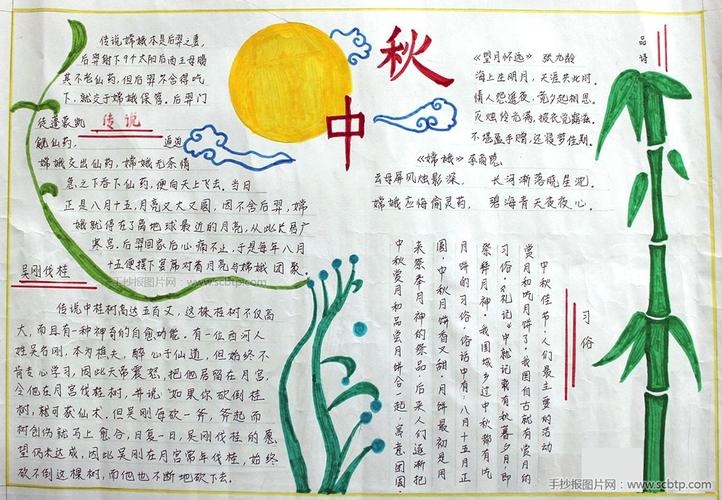 中秋
传说
传说嫦娥本是后羿之妻，
后羿射下9个太阳后西王母赐
其不老仙药，但后羿不舍得吃
下，就交于嫦娥保管。后羿门
徒蓬蒙觊
觎仙药，逼迫
嫦娥交出仙药，嫦娥无奈情
急之下吞下仙药，便向天上飞去，当日
正是八月十五，月亮又大又圆，因不舍后羿，嫦
娥就停在了离地球最近的月亮，从此长居广
寒宫。后羿回家后心痛不止，于是每年八月
十五便摆下宴席对着月亮与嫦娥团聚。
吴刚伐桂
传说中桂树高达五百丈，这株桂树不仅高
大，而且有一种神奇的自愈功能。有一位西河人
姓吴名刚，本为樵夫，醉心于仙道，但始终不
肯专心学习，因此天帝震怒，把他居留在月宫，
令他在月宫伐桂树，并说“如果你砍倒桂
树，就可获仙术。但吴刚每砍一斧，斧起而
树创伤就马上愈合，日复一日，吴刚伐桂的愿
望仍未达成，因此吴刚在月宫常年伐桂，始终
砍不倒这棵树，而他也不断地砍下去。
品诗
《望月怀远》 张九龄
海上生明月，天涯共此时。
情人怨遥夜，竟夕起相思。
灭烛怜光满，披衣觉露滋。
不堪盈手赠，还寝梦佳期。
《嫦娥》 李商隐
云母屏风烛影深， 长河渐落晓星沈。
嫦娥应悔偷灵药， 碧海青天夜夜心。
习俗
中秋佳节，人们最主要的活动
赏月和吃月饼了。我国自古就有赏月的
习俗，《礼记》中就记载有秋暮夕月，即
祭拜月神。我国城乡过中秋都有吃
月饼的习俗，俗话中有：八月十五月正
圆，中秋月饼香又甜。月饼最初是用
来祭奉月神的祭品，后来人们逐渐把
中秋赏月和品尝月饼合一起，寓意团圆。
手抄报图片网 - www.scbtp.com
手抄报图片网 - www.scbtp.com